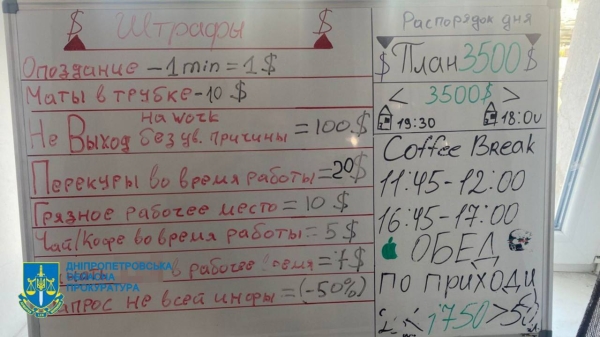 $ Штрафы $
Опоздание - 1 min = 1 $
Маты в трубке - 10 $
Не Выход на work без ув. причины = 100 $
Перекуры во время работы = 20 $
Грязное рабочее место = 10 $
Чай/Кофе во время работы = 5 $
в рабочее
не всей инфры = (-50%)
ДНІПРОПЕТРОВСЬКА
ОБЛАСНА
ПРОКУРАТУРА
Распорядок дня
$ План 3500 $
< 3500$ >
19:30 18:00
Coffee Break
11:45 - 12:00
16:45 - 17:00
ОБЕД
по приходи
1750 >